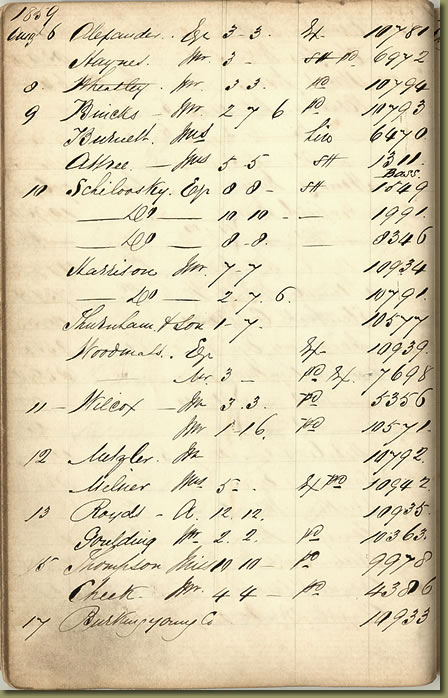 1859
Augt 6 Alexander . . Esq 3 - 3 . Ex 10781
Haynes . Mr 3 - 6972
8 . Wheatley . Mr . 3 3 . Pd 10794
9 Bincks - Mr . 2 7 6 Pd 10793
Burnett . Mrs 6470
Attree . - Mrs 5 5 . SH 1311 .
Bass .
10 Schilovsky . Esq 8 8 - SH 1849
— Do — 10 10 - — 1991 .
— Do — 8 - 8 . — 8346
Harrison Mr . 7 - 7 10934
— Do — 2 . 7 . 6 . 10791 .
Thurnham & Son 1 - 7 . 10577
Woodmas . . Esq Ex 10939 .
Mr . 3 - Pd Ex . 7698
11 - Wilcox - Mr 3 . 3 . Pd 5356
Mr 1 - 16 . Pd 10571 .
12 Metzler . Mr 10792 .
Milner Mrs 5 - . Ex Pd 10942 .
13 Royds - A . 12 . 12 . 10935 .
Goulding Mr 2 . 2 . Pd 10363 .
15 Thompson Miss 10 10 - Pd 9978
Cheek . Mr . 4 4 - Pd 4386
17 Co 10933